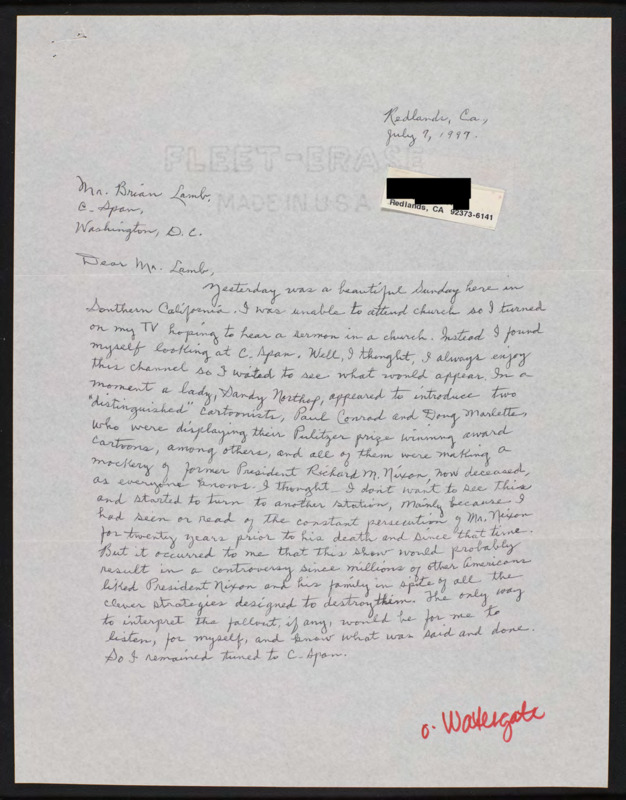 Redlands, Ca.,
July 7, 1997.
FLEET-ERASE
MADE IN U S A
Mr. Brian Lamb,
C-Span,
Washington, D.C.
Redlands, CA 92373-6141
Dear Mr. Lamb,
Yesterday was a beautiful Sunday here in
Southern California. I was unable to attend church so I turned
on my TV hoping to hear a sermon in a church. Instead I found
myself looking at C-Span. Well, I thought, I always enjoy
this channel so I waited to see what would appear. In a
moment a lady, Sandy Northop, appeared to introduce two
"distinguished" cartoonists, Paul Conrad and Doug Marlette,
who were displaying their Pulitzer prize winning award
cartoons, among others, and all of them were making a
mockery of former President Richard M. Nixon, now deceased,
as everyone knows. I thought - I dont want to see this
and started to turn to another station, mainly because I
had seen or read of the constant persecution of Mr. Nixon
for twenty years prior to his death and since that time.
But it occurred to me that this show would probably
result in a controversy since millions of other Americans
liked President Nixon and his family in spite of all the
clever strategies designed to destroy them. The only way
to interpret the fallout, if any, would be for me to
listen, for myself, and know what was said and done.
So I remained tuned to C-Span.
o. Watergate